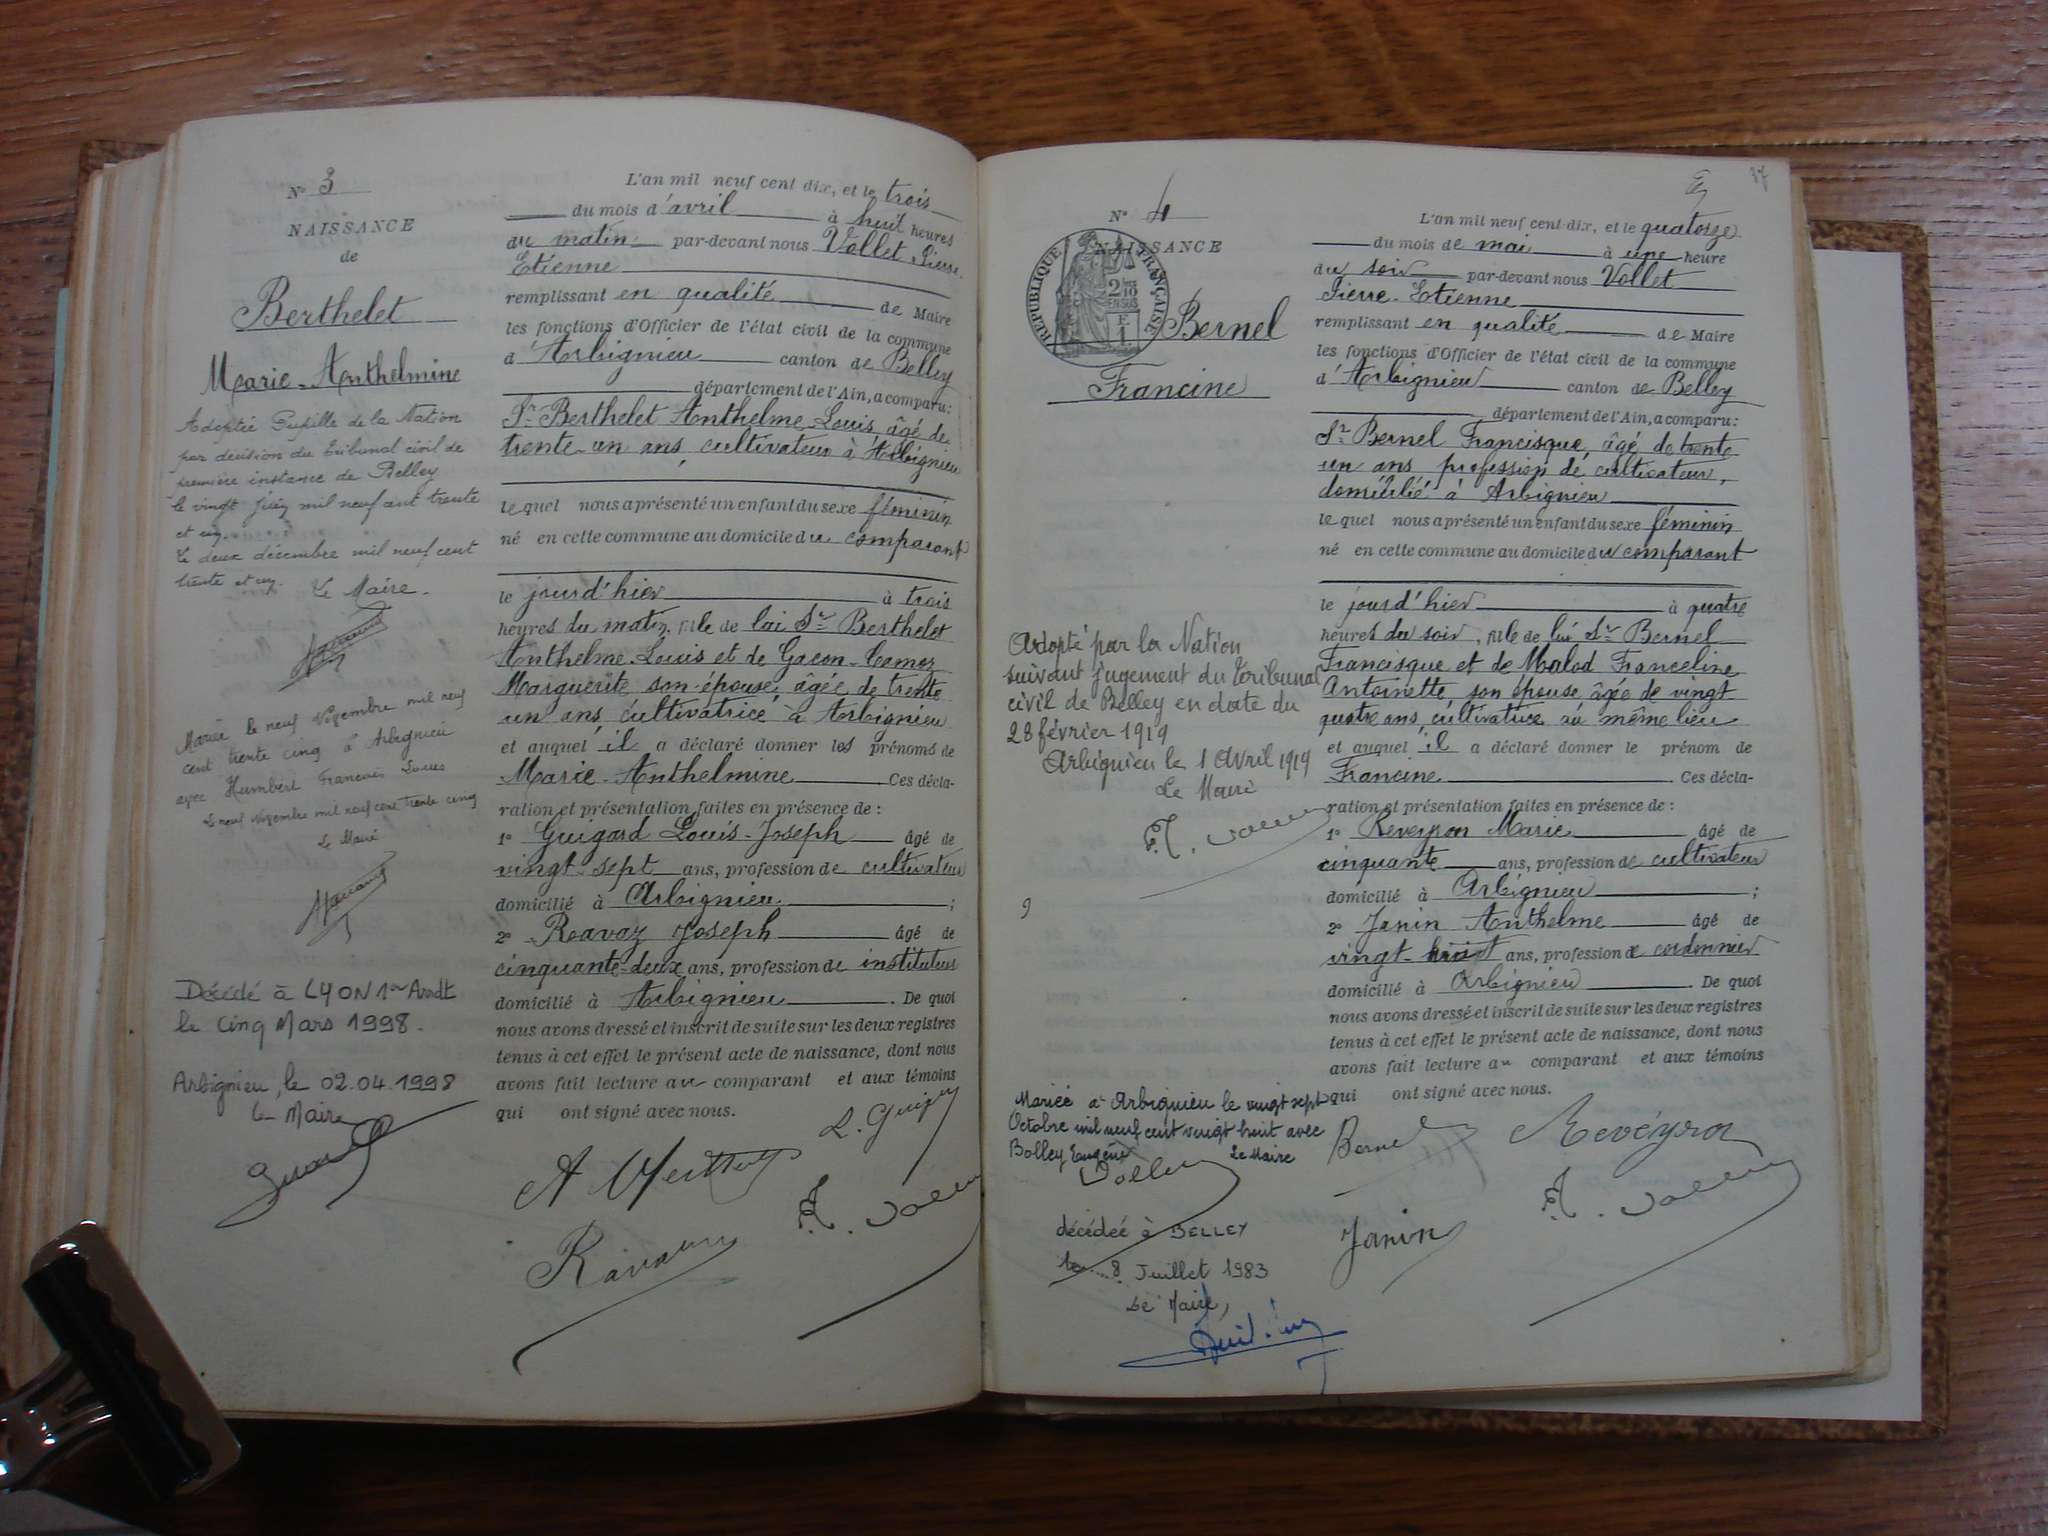 N° 3
NAISSANCE
de
Berthelet
Marie-Anthelmine
Adoptée Pupille de la Nation
par décision du tribunal civil de
première instance de Belley
le vingt juin mil neuf cent trente
et un.
Le deux décembre mil neuf cent
trente et un. Le Maire.
Mariée le neuf Novembre mil neuf
cent trente cinq à Arbignieu
avec Humbert François Louis
Le neuf Novembre mil neuf cent trente cinq
Le Maire
Décédé à LYON 1er Arrdt
le cinq Mars 1998.
Arbignieu, le 02.04.1998
le Maire
L'an mil neuf cent dix, et le trois
du mois d'avril à huit heures
du matin par-devant nous Vollet Pierre
Etienne
remplissant en qualité de Maire
les fonctions d'Officier de l'état civil de la commune
d'Arbignieu canton de Belley
département de l'Ain, a comparu:
Sr Berthelet Anthelme Louis, âgé de
trente-un ans, cultivateur à Arbignieu
lequel nous a présenté un enfant du sexe féminin
né en cette commune au domicile du comparant
le jour d'hier à trois
heures du matin, fille de lui Sr Berthelet
Anthelme-Louis et de Gacon-Camoz
Marguerite son épouse, âgée de trente
un ans, cultivatrice à Arbignieu
et auquel il a déclaré donner les prénoms de
Marie-Anthelmine Ces décla-
ration et présentation faites en présence de :
1° Guigard Louis-Joseph âgé de
vingt-sept ans, profession de cultivateur
domicilié à Arbignieu ;
2° Ravaz Joseph âgé de
cinquante-deux ans, profession de instituteur
domicilié à Arbignieu . De quoi
nous avons dressé et inscrit de suite sur les deux registres
tenus à cet effet le présent acte de naissance, dont nous
avons fait lecture au comparant et aux témoins
qui ont signé avec nous.
37
N° 4
NAISSANCE
RÉPUBLIQUE FRANÇAISE
2 10
EN SUS
Bernel
Francine
Adopté par la Nation
suivant jugement du Tribunal
civil de Belley en date du
28 février 1919
Arbignieu le 1 Avril 1919
Le Maire
9
Mariée à Arbignieu le vingt sept
Octobre mil neuf cent vingt huit avec
Bolley Eugène Le Maire
décédée à BELLEY
le 8 Juillet 1983
Le Maire,
L'an mil neuf cent dix, et le quatorze
du mois de mai à une heure
du soir par-devant nous Vollet
Pierre-Etienne
remplissant en qualité de Maire
les fonctions d'Officier de l'état civil de la commune
d'Arbignieu canton de Belley
département de l'Ain, a comparu:
Sr Bernel Francisque, âgé de trente
un ans, profession de cultivateur,
domicilié à Arbignieu
lequel nous a présenté un enfant du sexe féminin
né en cette commune au domicile du comparant
le jour d'hier à quatre
heures du soir, fille de lui Sr Bernel
Francisque et de Malod Franceline
Antoinette, son épouse, âgée de vingt
quatre ans, cultivatrice au même lieu
et auquel il a déclaré donner le prénom de
Francine . Ces décla-
ration et présentation faites en présence de :
1° Reveyron Marie âgé de
cinquante ans, profession de cultivateur
domicilié à Arbignieu ;
2° Janin Anthelme âgé de
vingt-huit ans, profession de cordonnier
domicilié à Arbignieu . De quoi
nous avons dressé et inscrit de suite sur les deux registres
tenus à cet effet le présent acte de naissance, dont nous
avons fait lecture au comparant et aux témoins
qui ont signé avec nous.
Bernel
Janin